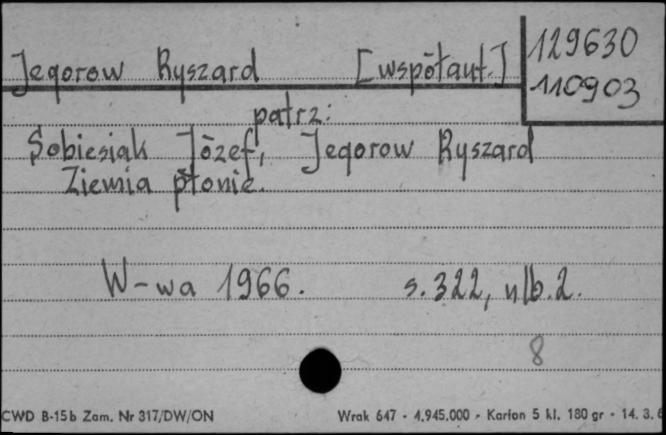 129630
Jegorow Ryszard [współaut.]
110903
patrz:
Sobiesiak Józef, Jegorow Ryszard
Ziemia płonie.
W-wa 1966. s. 322, nlb. 2.
8
CWD B-15b Zam. Nr 317/DW/ON Wrak 647 - 4.945.000 - Karton 5 kl. 180 gr - 14. 3. 6